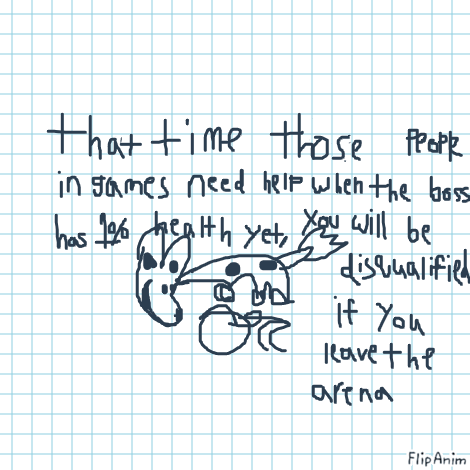 that time those people
in games need help when the boss
has 1% health yet, you will be
disqualified
if you
leave the
arena
FlipAnim